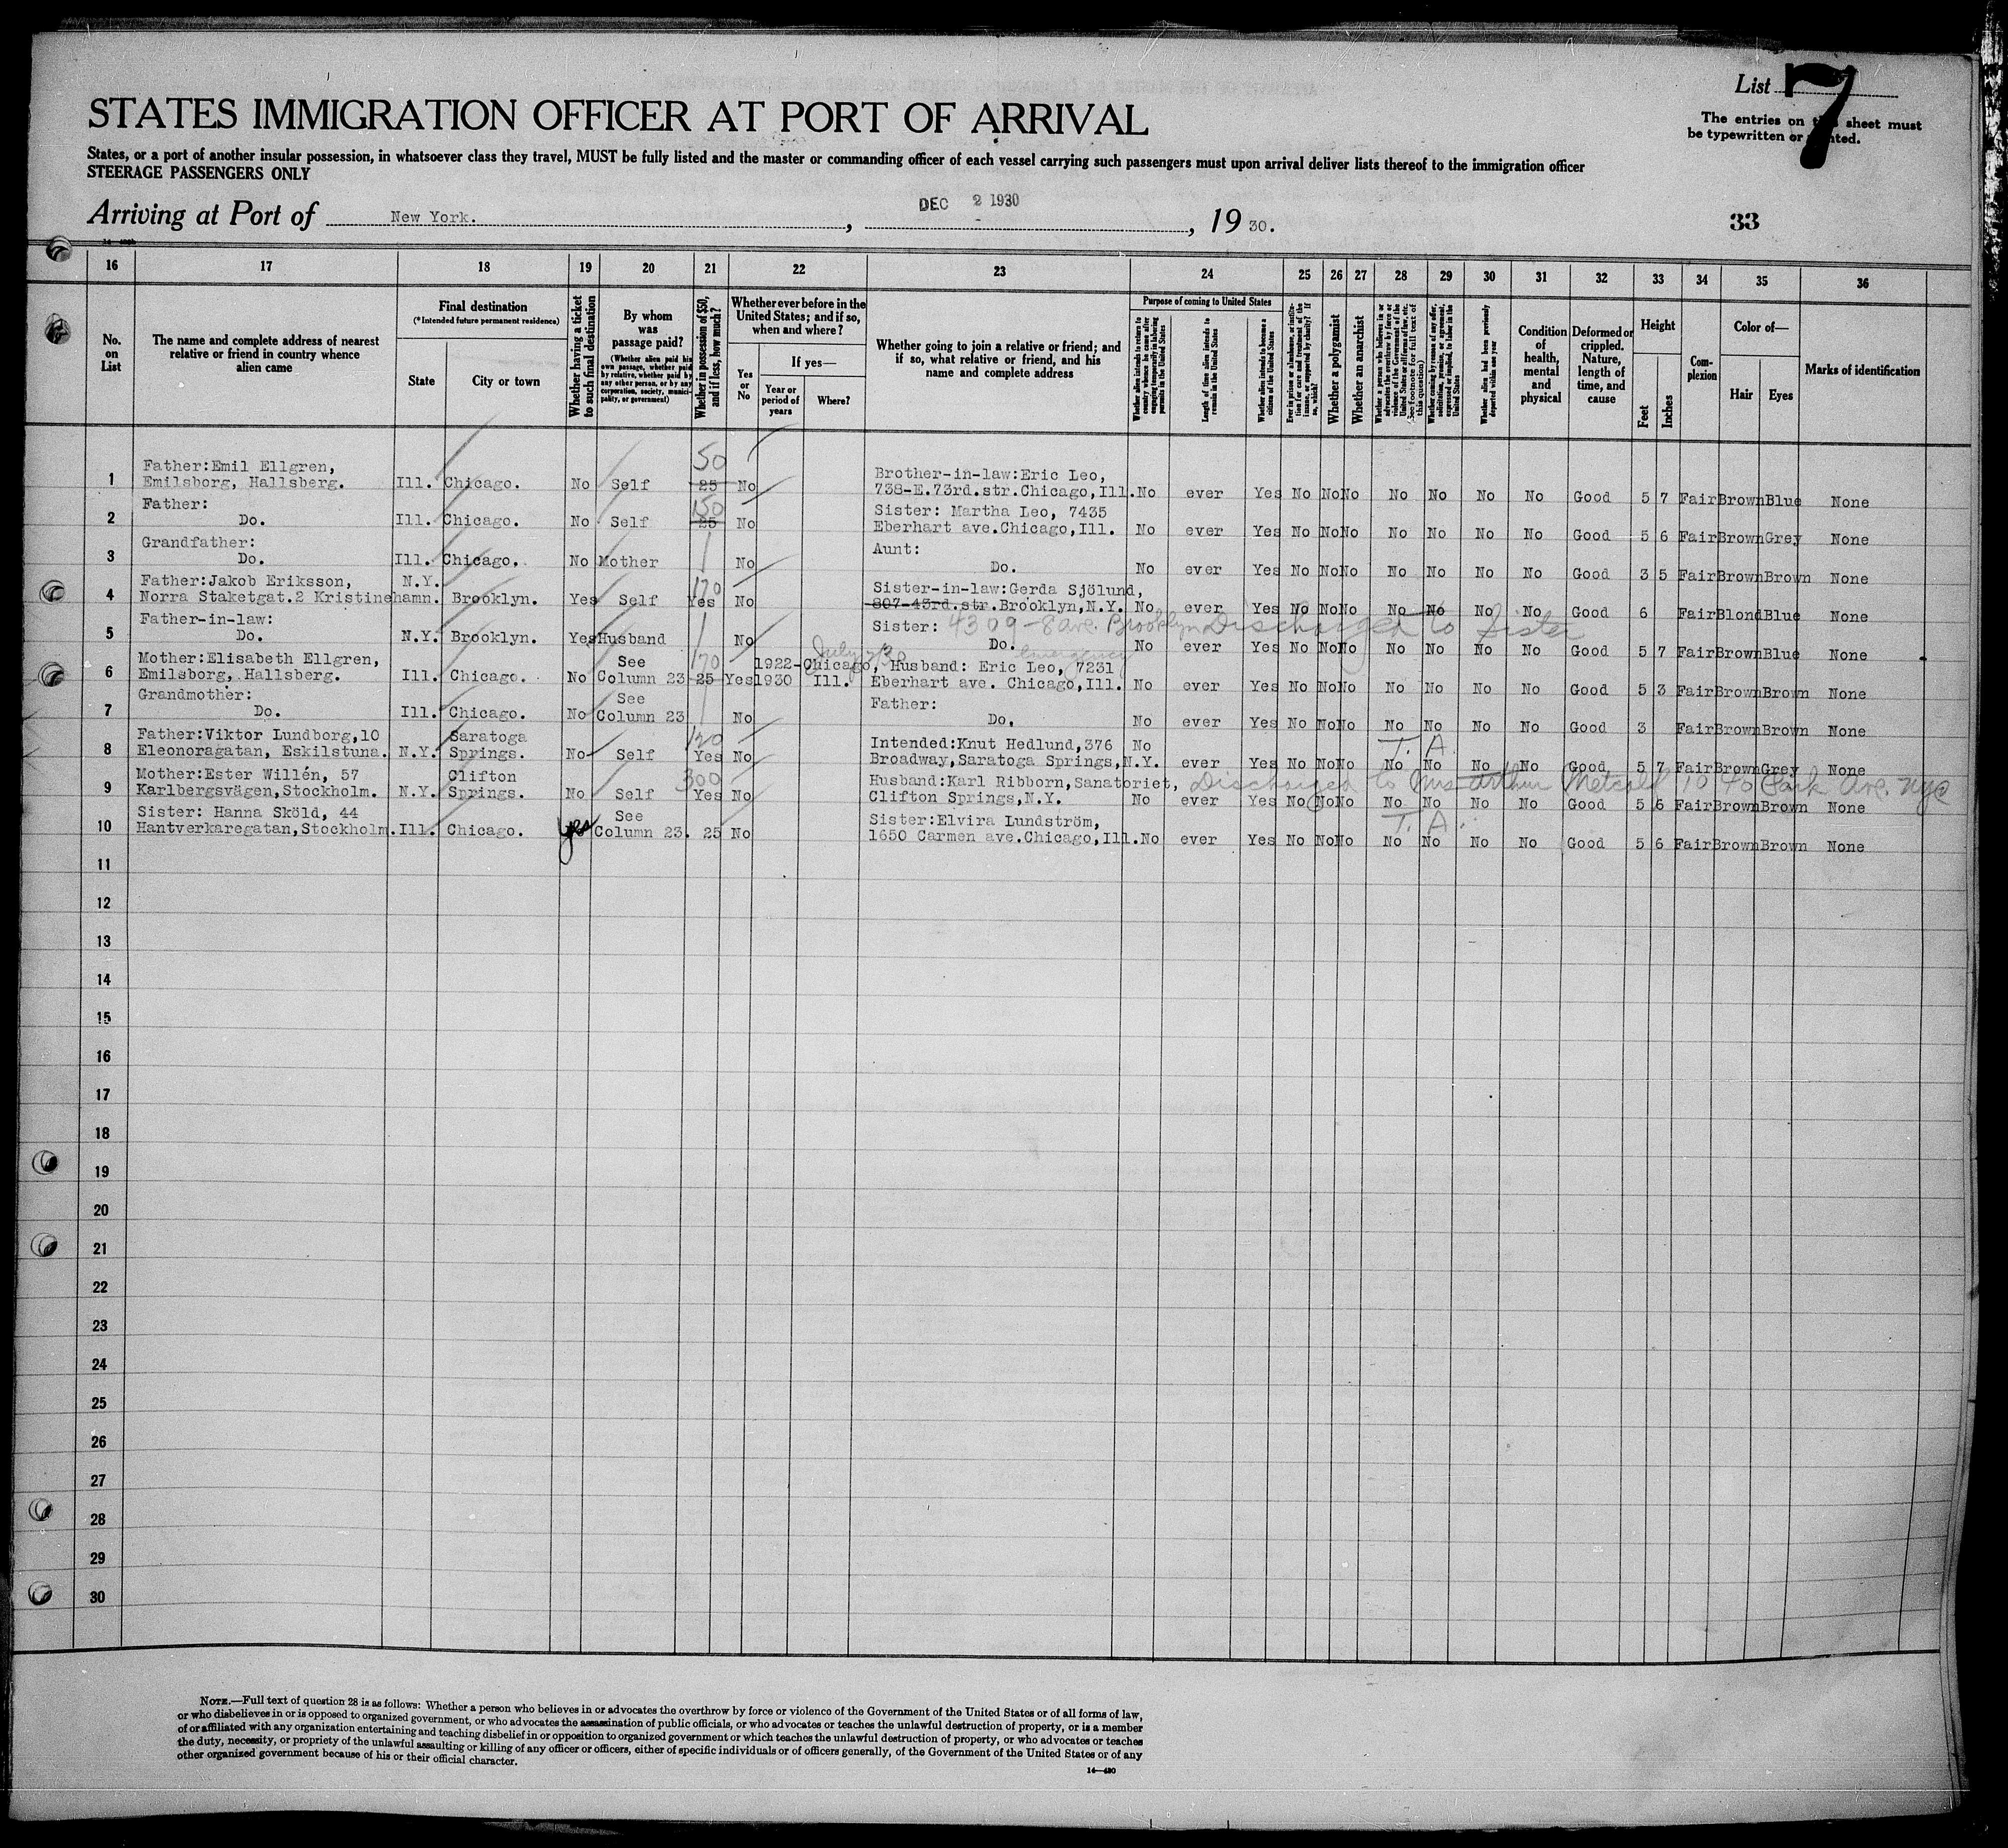 List 7
STATES IMMIGRATION OFFICER AT PORT OF ARRIVAL
The entries on this sheet must
be typewritten or printed.
States, or a port of another insular possession, in whatsoever class they travel, MUST be fully listed and the master or commanding officer of each vessel carrying such passengers must upon arrival deliver lists thereof to the immigration officer
STEERAGE PASSENGERS ONLY
Arriving at Port of New York. , DEC 2 1930 , 19 30. 33
16 17 18 19 20 21 22 23 24 25 26 27 28 29 30 31 32 33 34 35 36
No. on List
The name and complete address of nearest relative or friend in country whence alien came
Final destination
(*Intended future permanent residence)
State
City or town
Whether having a ticket to such final destination
By whom was passage paid?
(Whether alien paid his own passage, whether paid by relative, whether paid by any other person, or by any corporation, society, municipality, or government)
Whether in possession of $50, and if less, how much?
Whether ever before in the United States; and if so, when and where?
Yes or No
If yes—
Year or period of years
Where?
Whether going to join a relative or friend; and if so, what relative or friend, and his name and complete address
Purpose of coming to United States
Whether alien intends to return to country whence he came after engaging temporarily in laboring pursuits in the United States
Length of time alien intends to remain in the United States
Whether alien intends to become a citizen of the United States
Ever in prison or almshouse, or institution for care and treatment of the insane, or supported by charity? If so, which?
Whether a polygamist
Whether an anarchist
Whether a person who believes in or advocates the overthrow by force or violence of the Government of the United States or all forms of law, etc. (See footnote for full text of this question)
Whether coming by reason of any offer, solicitation, promise, or agreement, expressed or implied, to labor in the United States
Whether alien had been previously deported within one year
Condition of health, mental and physical
Deformed or crippled. Nature, length of time, and cause
Height
Feet
Inches
Complexion
Color of—
Hair
Eyes
Marks of identification
1 Father:Emil Ellgren, Emilsborg, Hallsberg. Ill. Chicago. No Self 25 50 No Brother-in-law:Eric Leo, 738-E.73rd.str.Chicago,Ill. No ever Yes No No No No No No No Good 5 7 Fair Brown Blue None
2 Father: Do. Ill. Chicago. No Self 25 150 No Sister: Martha Leo, 7435 Eberhart ave.Chicago,Ill. No ever Yes No No No No No No No Good 5 6 Fair Brown Grey None
3 Grandfather: Do. Ill. Chicago. No Mother No Aunt: Do. No ever Yes No No No No No No No Good 3 5 Fair Brown Brown None
4 Father:Jakob Eriksson, Norra Staketgat.2 Kristinehamn. N.Y. Brooklyn. Yes Self Yes 170 No Sister-in-law:Gerda Sjölund, 807-43rd.str.Brooklyn,N.Y. No ever Yes No No No No No No No Good 6 Fair Blond Blue None
4309-8 ave. Brooklyn Discharged to Sister
5 Father-in-law: Do. N.Y. Brooklyn. Yes Husband No Sister: Do. No ever Yes No No No No No No No Good 5 7 Fair Brown Blue None
July 30 emergency
6 Mother:Elisabeth Ellgren, Emilsborg, Hallsberg. Ill. Chicago. No See Column 23 25 170 Yes 1922-1930 Chicago, Ill. Husband: Eric Leo, 7231 Eberhart ave. Chicago,Ill. No ever Yes No No No No No No No Good 5 3 Fair Brown Brown None
7 Grandmother: Do. Ill. Chicago. No See Column 23 No Father: Do. No ever Yes No No No No No No No Good 3 Fair Brown Brown None
T. A.
8 Father:Viktor Lundborg,10 Eleonoragatan, Eskilstuna. N.Y. Saratoga Springs. No Self Yes 120 No Intended:Knut Hedlund,376 Broadway,Saratoga Springs,N.Y. No ever Yes No No No No No No No Good 5 7 Fair Brown Grey None
Discharged to Mrs Arthur Metcalf 1040 Park Ave. NYC
9 Mother:Ester Willén, 57 Karlbergsvägen,Stockholm. N.Y. Clifton Springs. No Self Yes 300 No Husband:Karl Ribborn,Sanatoriet, Clifton Springs,N.Y. No ever Yes No No No No No No No Good 5 6 Fair Brown Brown None
T. A.
10 Sister: Hanna Sköld, 44 Hantverkaregatan,Stockholm. Ill. Chicago. yes See Column 23. 25 No Sister:Elvira Lundström, 1650 Carmen ave.Chicago,Ill. No ever Yes No No No No No No No Good 5 6 Fair Brown Brown None
11
12
13
14
15
16
17
18
19
20
21
22
23
24
25
26
27
28
29
30
NOTE.—Full text of question 28 is as follows: Whether a person who believes in or advocates the overthrow by force or violence of the Government of the United States or of all forms of law,
or who disbelieves in or is opposed to organized government, or who advocates the assassination of public officials, or who advocates or teaches the unlawful destruction of property, or is a member
of or affiliated with any organization entertaining and teaching disbelief in or opposition to organized government or which teaches the unlawful destruction of property, or who advocates or teaches
the duty, necessity, or propriety of the unlawful assaulting or killing of any officer or officers, either of specific individuals or of officers generally, of the Government of the United States or of any
other organized government because of his or their official character.
14—480